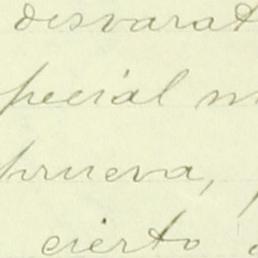 desvarat
pecial m
prueva,
cierto